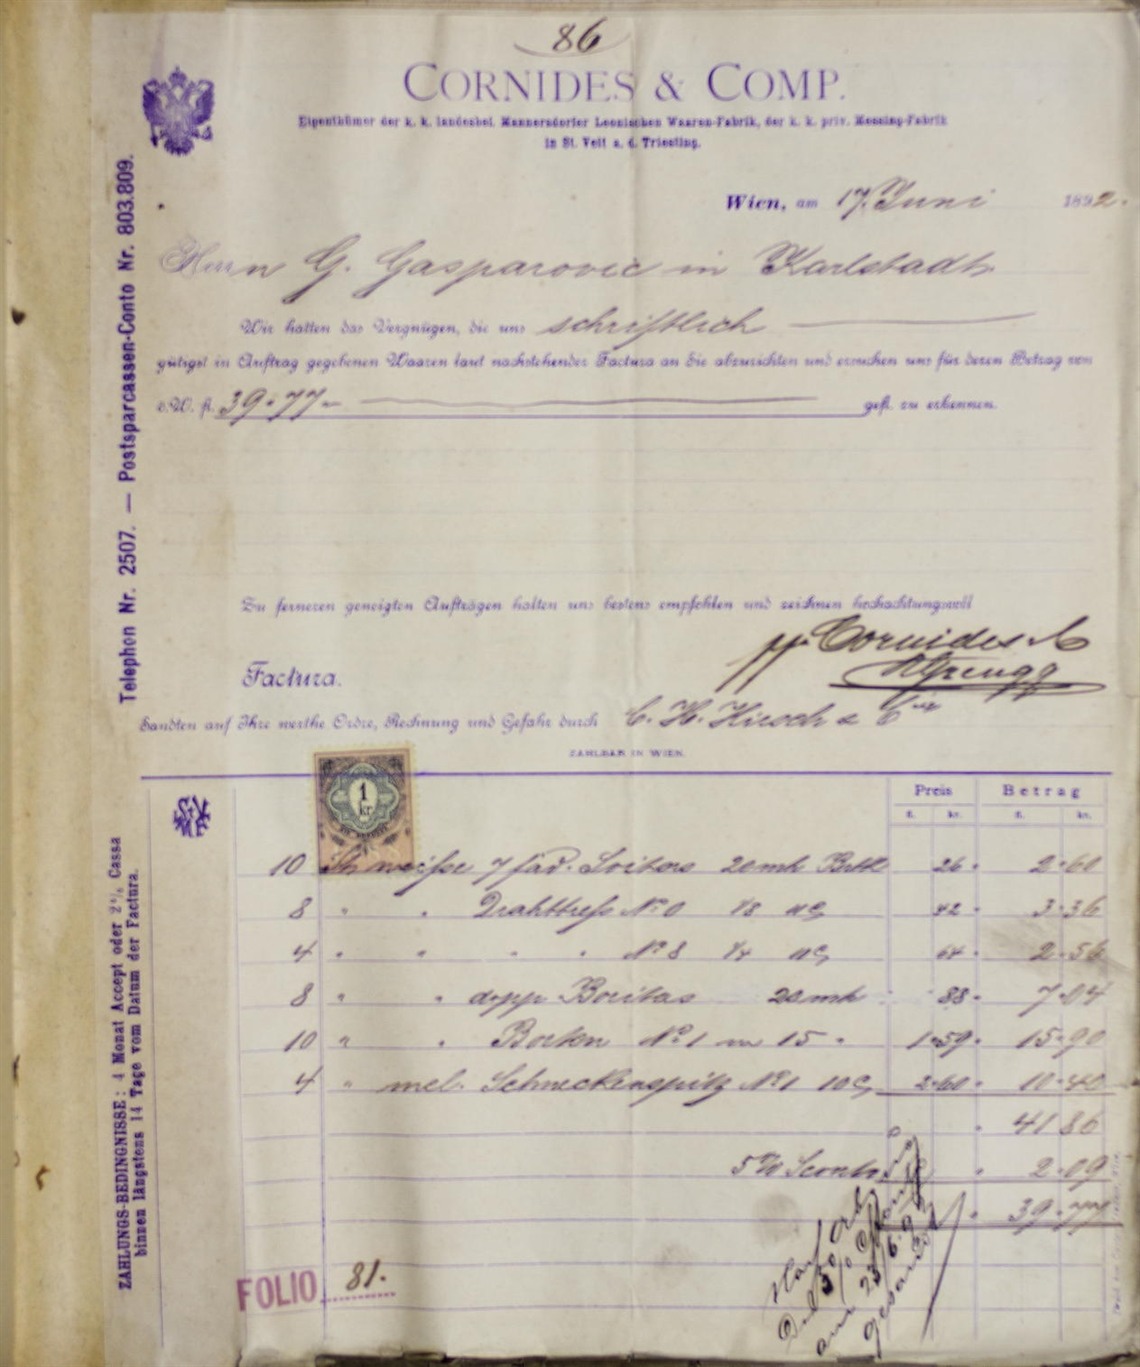 86
CORNIDES & COMP.
Eigenthümer der k. k. landesbef. Mannersdorfer Leonischen Waaren-Fabrik, der k. k. priv. Messing-Fabrik
in St. Veit a. d. Triesting.
Wien, am 17. Juni 1892.
Herrn G. Gasparovic in Karlstadt
Wir hatten das Vergnügen, die uns schriftlich
gütigst in Auftrag gegebenen Waaren laut nachstehender Factura an Sie abzurichten und ersuchen uns für deren Betrag von
ö.W. fl. 39.77.- gefl. zu erkennen.
Zu ferneren geneigten Aufträgen halten uns bestens empfohlen und zeichnen hochachtungsvoll
pp. Cornides & C
Factura.
Sandten auf Ihre werthe Ordre, Rechnung und Gefahr durch C. H. Hirsch & C
ZAHLBAR IN WIEN.
Telephon Nr. 2507. — Postsparcassen-Conto Nr. 803.809.
ZAHLUNGS-BEDINGNISSE: 4 Monat Accept oder 2% Cassa
binnen längstens 14 Tage vom Datum der Factura.
1 kr.
Preis Betrag
fl. kr. fl. kr.
10 weisse 7 26 2.60
8 " " No 0 1/8 42 3.36
4 " " " " No 8 1/4 64 2.56
8 " " dopp 88 7.04
10 " " No 1 15 " 1.59 15.90
4 " Schneckenspitz No 1 10 2.60 10.40
41 86
5% Sconto 2.09
39.77
am 23/6.92
gesandt
FOLIO 81.